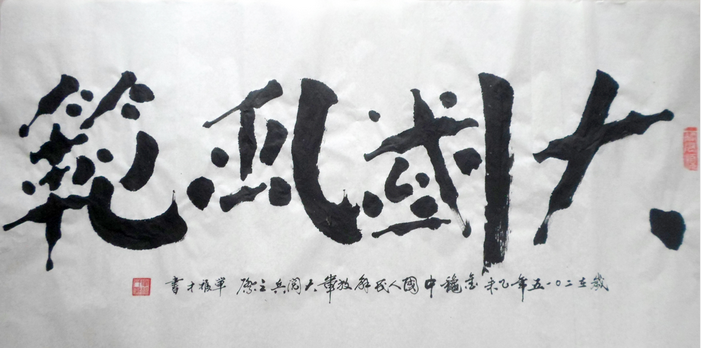 大國風範
歲在二〇一五年乙未金龝中國人民解放軍大閱兵之際 單振才書